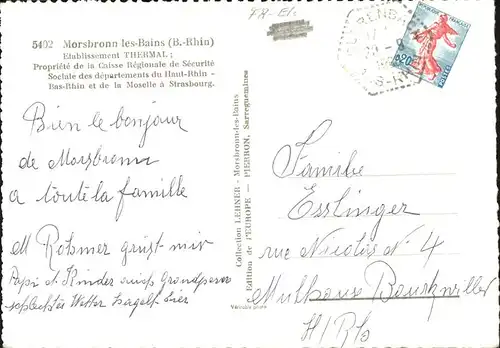 FR. El.
5402 Morsbronn-les-Bains (B.-Rhin)
Etablissement THERMAL ;
Propriété de la Caisse Régionale de Sécurité
Sociale des départements du Haut-Rhin -
Bas-Rhin et de la Moselle à Strasbourg.
Bien le bonjour
de Morsbronn
a toute la famille
M Rohmer grüst mir
Papi d. Kinder
schlechtes Wetter
Collection LEHNER - Morsbronn-les-Bains
Edition de l'EUROPE - PIERRON, Sarreguemines
0,20
Familie
Esslinger
rue Nicolas N° 4
Mulhouse Bourtzwiller
H/Rh